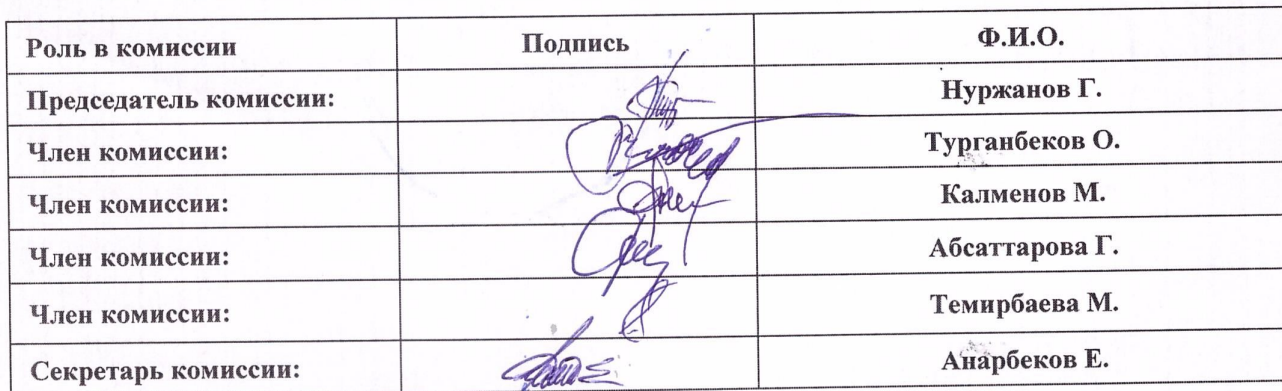 Роль в комиссии Подпись Ф.И.О.
Председатель комиссии: Нуржанов Г.
Член комиссии: Турганбеков О.
Член комиссии: Калменов М.
Член комиссии: Абсаттарова Г.
Член комиссии: Темирбаева М.
Секретарь комиссии: Анарбеков Е.